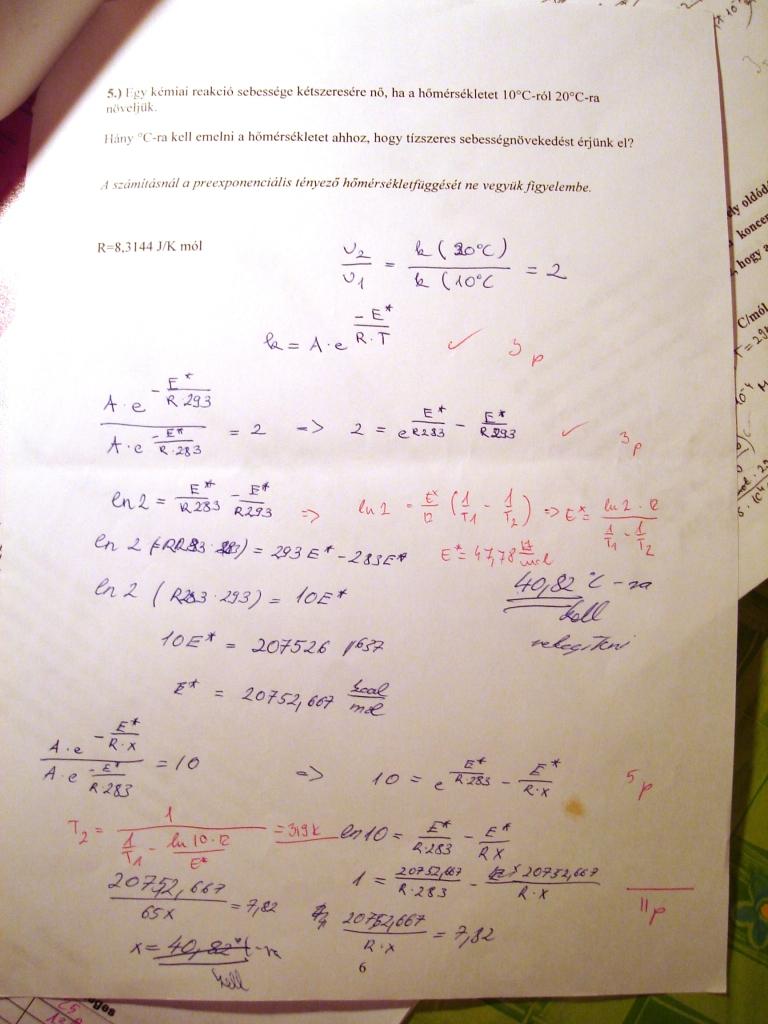 5.) Egy kémiai reakció sebessége kétszeresére nő, ha a hőmérsékletet 10°C-ról 20°C-ra
növeljük.
Hány °C-ra kell emelni a hőmérsékletet ahhoz, hogy tízszeres sebességnövekedést érjünk el?
A számításnál a preexponenciális tényező hőmérsékletfüggését ne vegyük figyelembe.
R=8,3144 J/K mól
υ2/υ1 = k (20°C) / k (10°C = 2
k = A·e^(-E*/R·T) ✓ 3p
A·e^(-E*/R·293) / A·e^(-E*/R·283) = 2 => 2 = e^(E*/R283 - E*/R293) ✓ 3p
ln2 = E*/R283 - E*/R293 => ln2 = E*/R (1/T1 - 1/T2) => E* = ln2·R / (1/T1 - 1/T2)
= 293E* - 283E* E* = 47,78 kJ/mol
ln2 (R283·293) = 10E* 40,82 °C-ra
kell
10E* = 207526
E* = 20752,667 kcal/mol
A·e^(-E*/R·x) / A·e^(-E*/R·283) = 10 => 10 = e^(E*/R·283 - E*/R·x) 5p
T2 = 1 / (1/T1 - ln10·R/E*) = 319K ln10 = E*/R·283 - E*/RX
1 = 20752,667/R·283 - 20752,667/R·x
20752,667/65x = 7,82 20752,667/R·x = 7,82 11p
x = 40,82°C-ra
kell
6
ely oldód
koncen
hogy a
C/mól